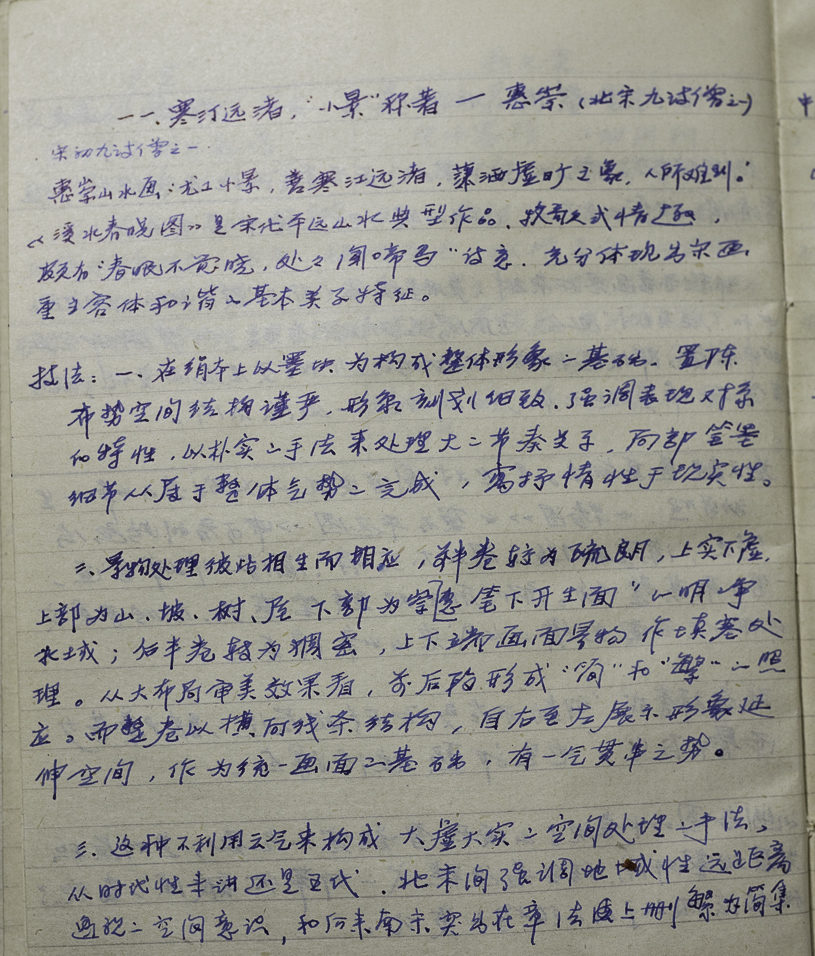 一一、寒汀远渚，“小景”称著 — 惠崇（北宋九诗僧之一）
宋初九诗僧之一
惠崇山水画：尤工小景，善寒江远渚，萧洒虚旷之象，人所难到。”
《溪水春晓图》是宋代平远山水典型作品，抒情
颇有“春眠不觉晓，处々闻啼鸟”诗意，充分体现为宋画，
重主客体和谐之基本美学特征。
技法：一、在绢本上以墨块为构成整体形象之基础，置阵
布势空间结构谨严，形象刻划细致，强调表现对象
的特性，以朴实之手法来处理大之节奏关系，局部笔墨
细节从属于整体气势之完成，寓抒情性于现实性。
二、景物处理彼此相生而相应，前半卷较为疏朗，上实下虚，
上部为山、坡、树、屋 下部为惠崇笔下开生面”之明净
水域；后半卷较为稠密，上下全部画面景物作填塞处
理。从大布局审美效果看，前后段形成“简”和“繁”之照
应。而整卷以横向线条结构，自右至左展示形象延
伸空间，作为统一画面之基础，有一气贯串之势。
三、这种不利用云气来构成大虚大实之空间处理之手法，
从时代性来讲还是五代、北宋间强调地域性远距离
透视之空间意识，和后来南宋契为在章法上删繁为简集